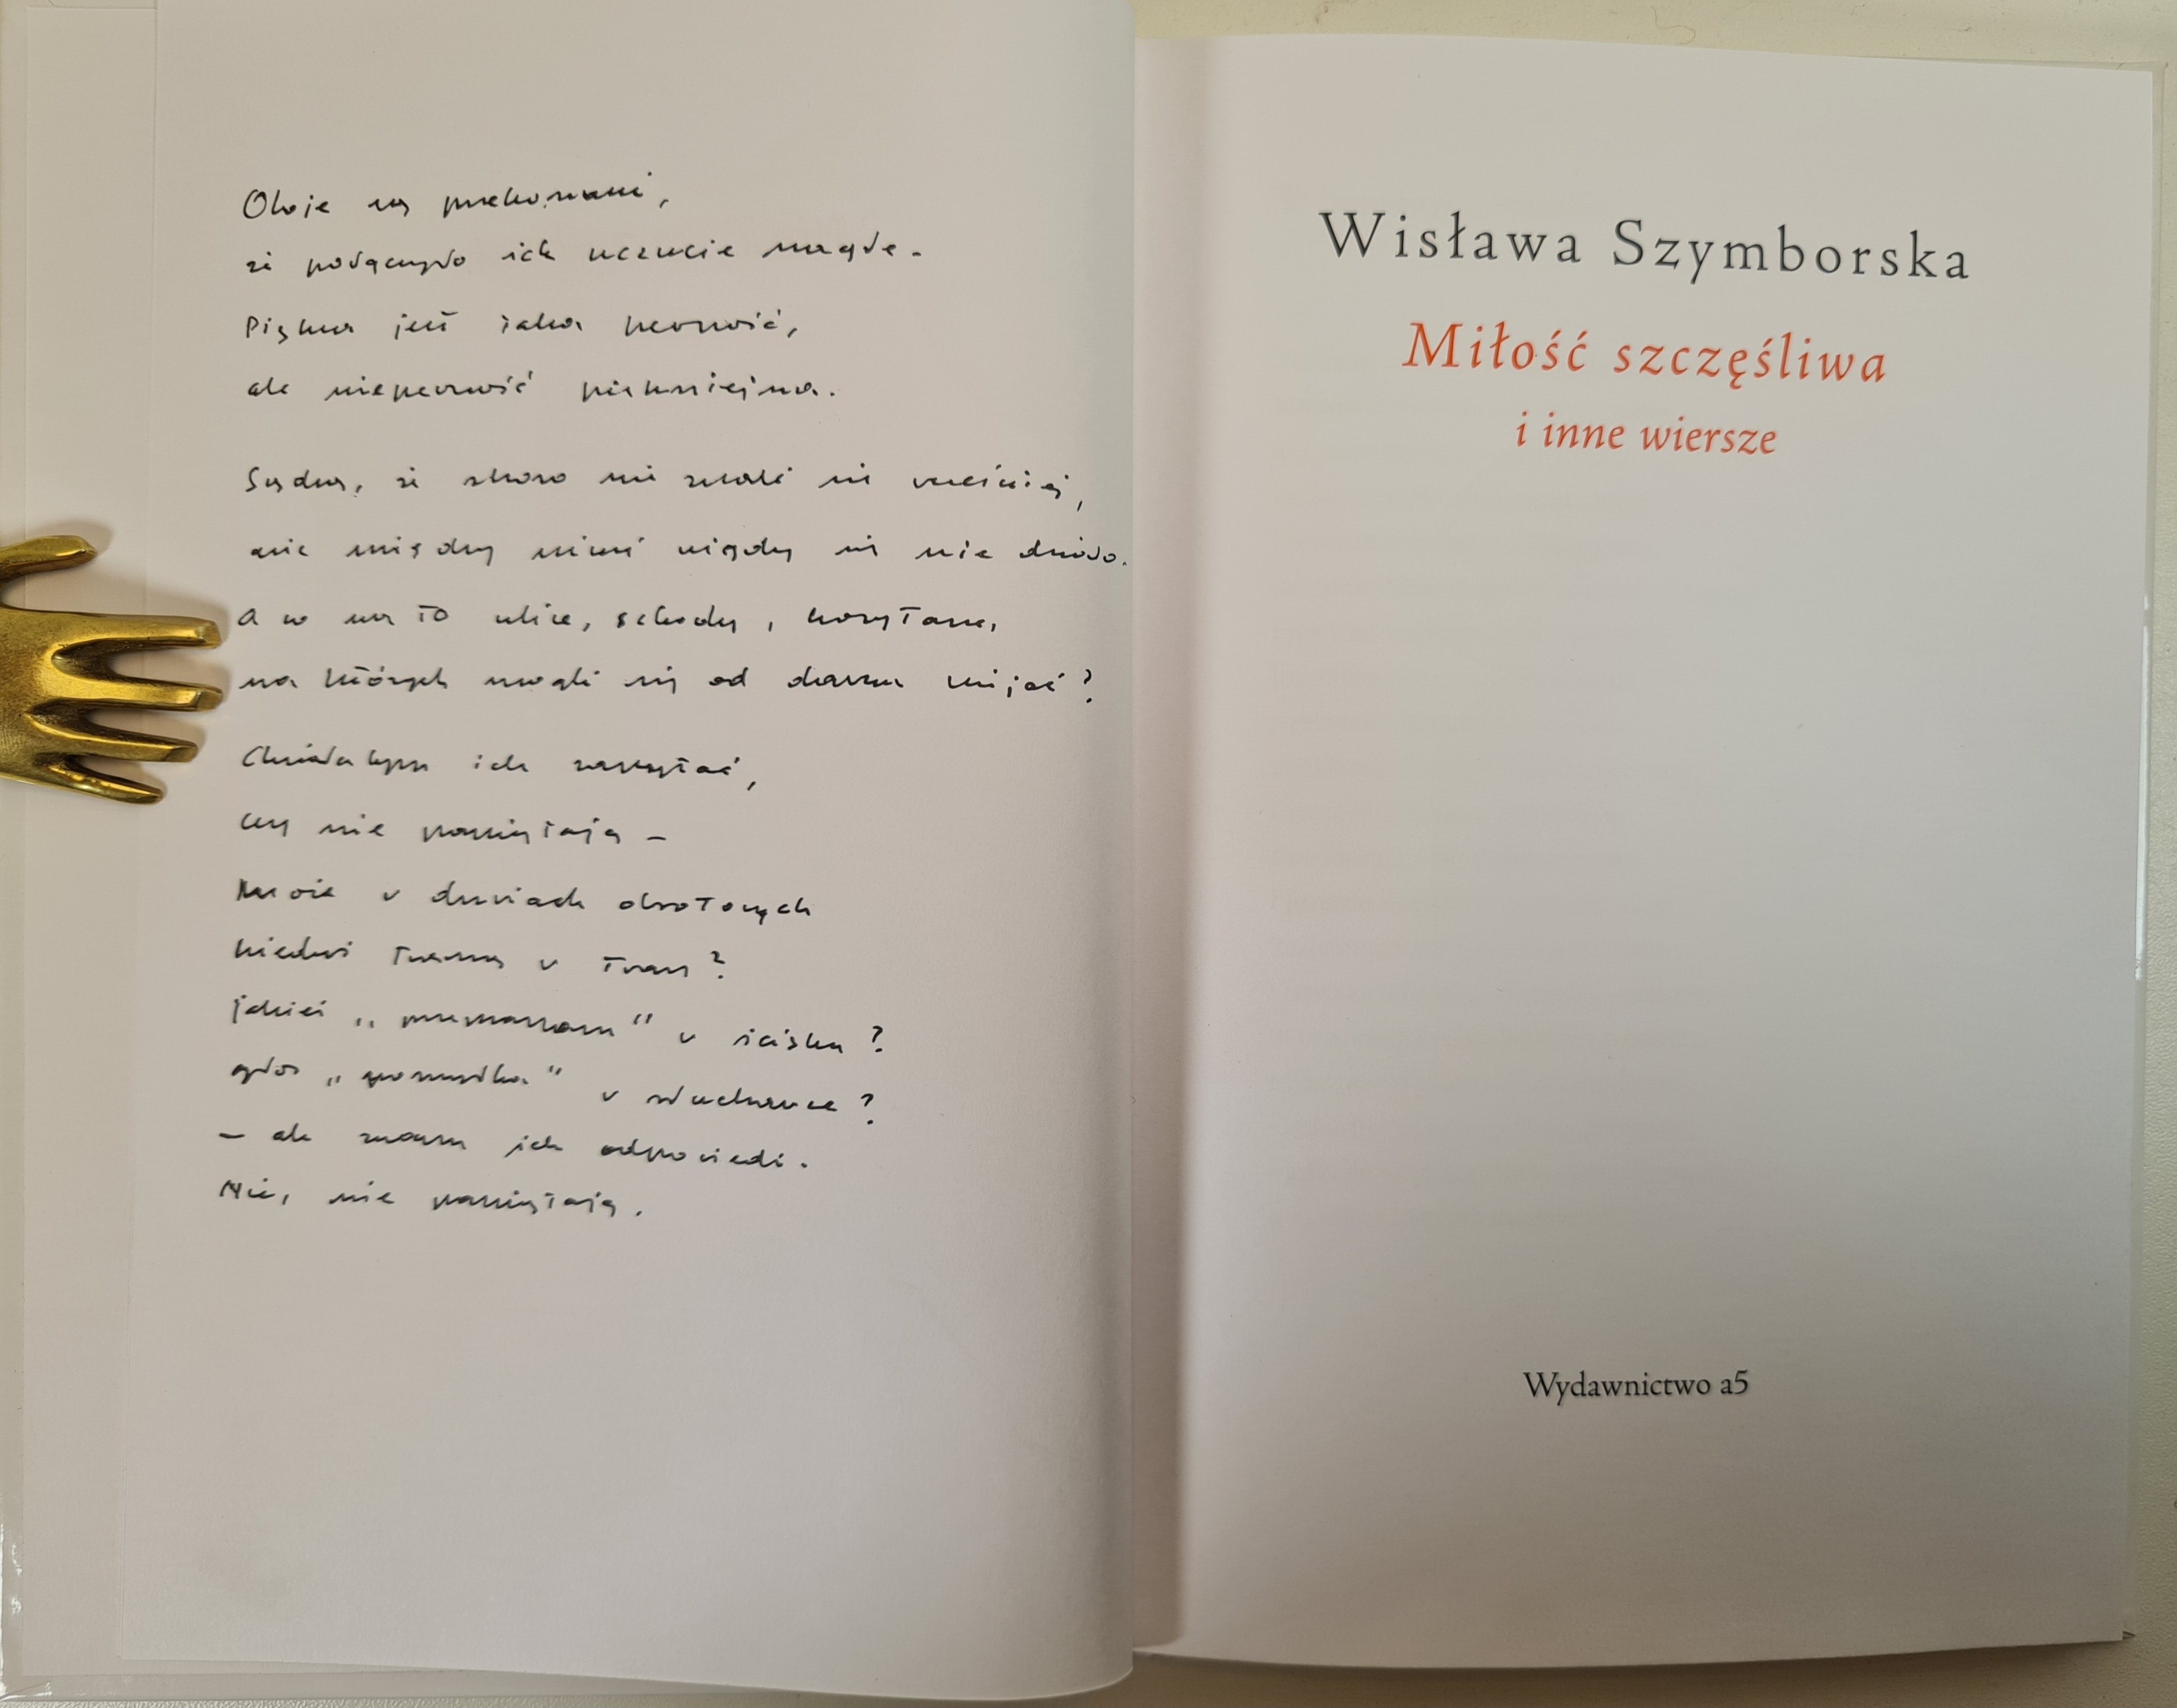 Oboje są przekonani,
że połączyło ich uczucie nagłe.
Piękna jest taka pewność,
ale niepewność piękniejsza.
Sądzą, że skoro nie znali się wcześniej,
nic między nimi nigdy się nie działo.
A co na to ulice, schody, korytarze,
na których mogli się od dawna mijać?
Chciałabym ich zapytać,
czy nie pamiętają –
Może w drzwiach obrotowych
kiedyś twarzą w twarz?
jakieś „przepraszam” w ścisku?
głos „pomyłka” w słuchawce?
– ale znam ich odpowiedź.
Nie, nie pamiętają.
Wisława Szymborska
Miłość szczęśliwa
i inne wiersze
Wydawnictwo a5